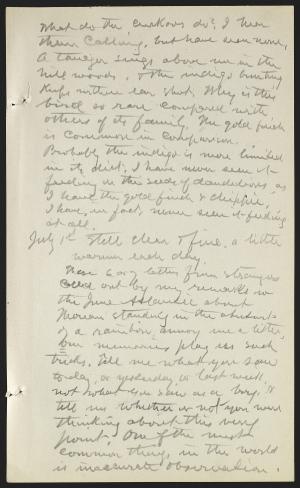 What do the cuckoos do? I hear
them calling, but have seen none,
A tanager sings above me in the
hill woods, & the indigo bunting
keeps within ear shot. Why is this
bird so rare compared with
others of its family. The gold finch
is common in comparison.
Probably the indigo is more limited
in its diet. I have never seen it
feeding on the seeds of dandelions as
I have the gold finch & chippie,
I have, in fact, never seen it feeding
at all.
July 1st Still clear & fine, a little
warmer each day.
6 or 7 letters from strangers
called out by my remarks in
the June Atlantic about
Thoreau standing in the abutment
of a rainbow, annoy me a little,
Our memories play us such
tricks. Tell me what you saw
to-day, or yesterday, or last week,
not what you saw as a boy, &
tell me whether or not you were
thinking about this very
point. One of the most
common things in the world
is inaccurate observation.